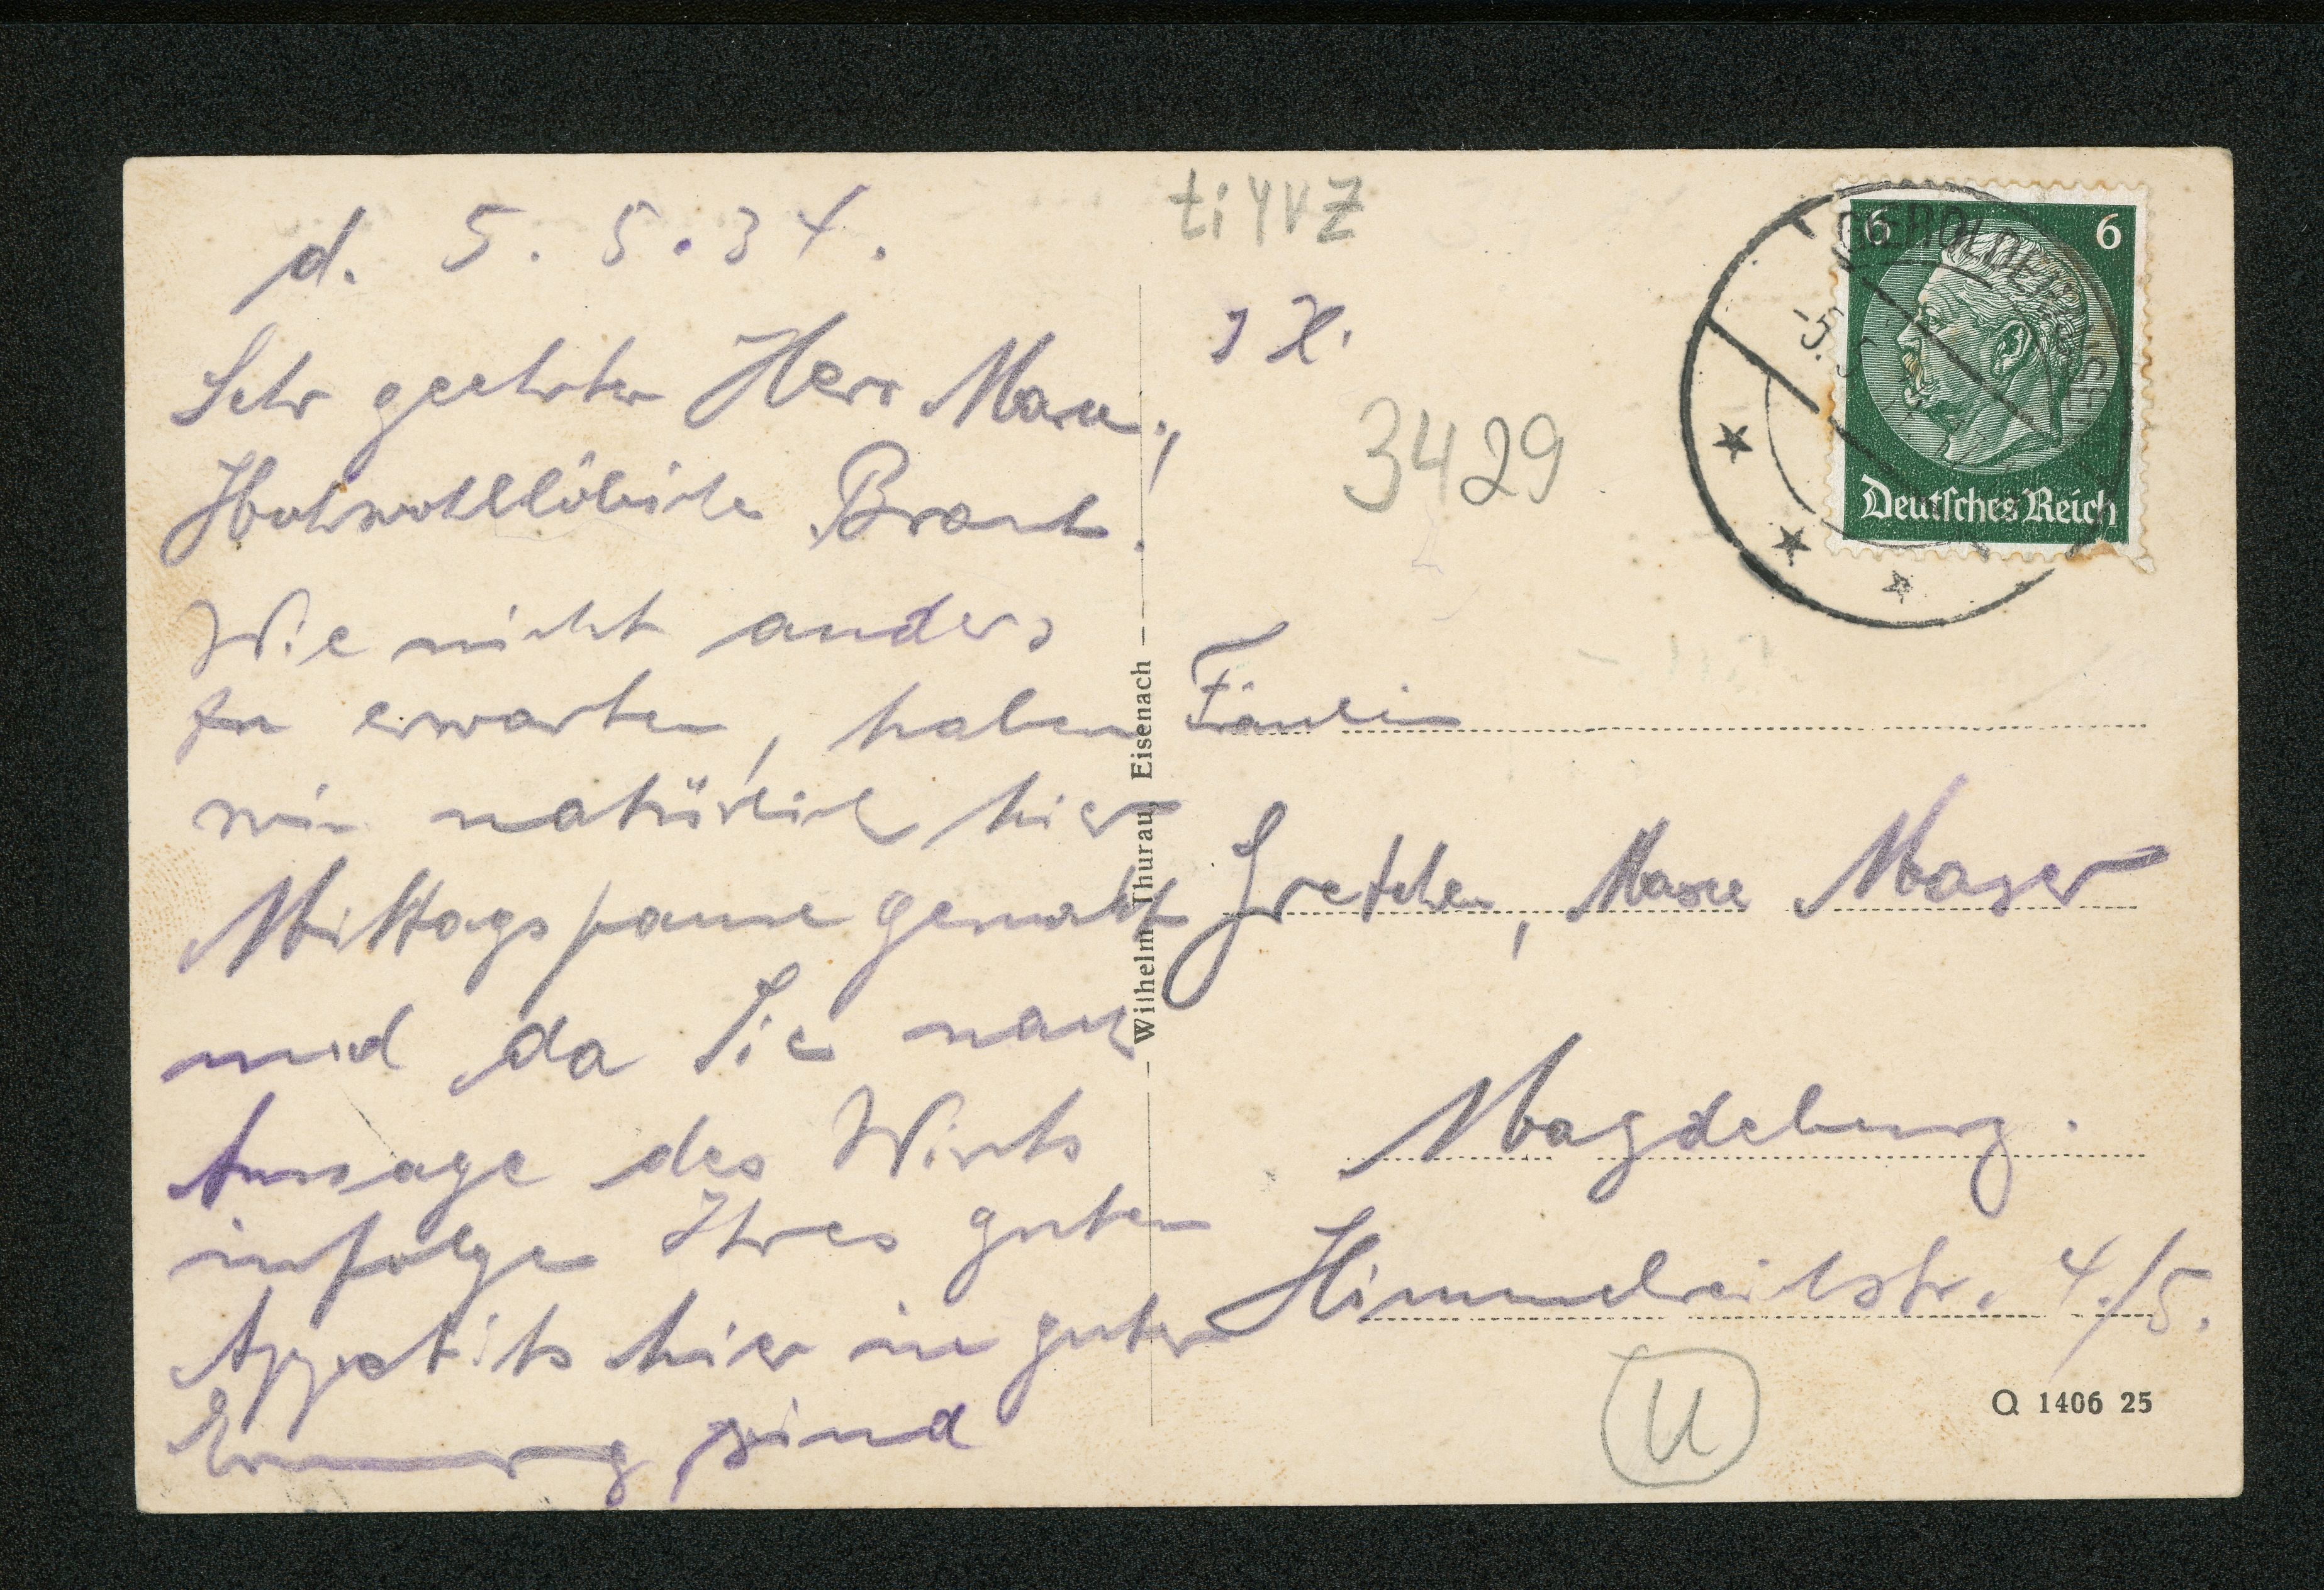 d. 5. 5. 34.
Sehr geehrter Herr
Hochwohllöbliche Braut!
Wie nicht anders
zu erwarten, haben
wir natürlich hier
Mittagspause gemacht
und da Sie nach
Aussage des Wirts
infolge Ihres guten
Appetits hier in guter
Erinnerung sind
Wilhelm Thurau, Eisenach
3429
6 6
Deutsches Reich
Fräulein
Gretchen,
Magdeburg.
Himmelreichstr. 4./5.
U
Q 1406 25